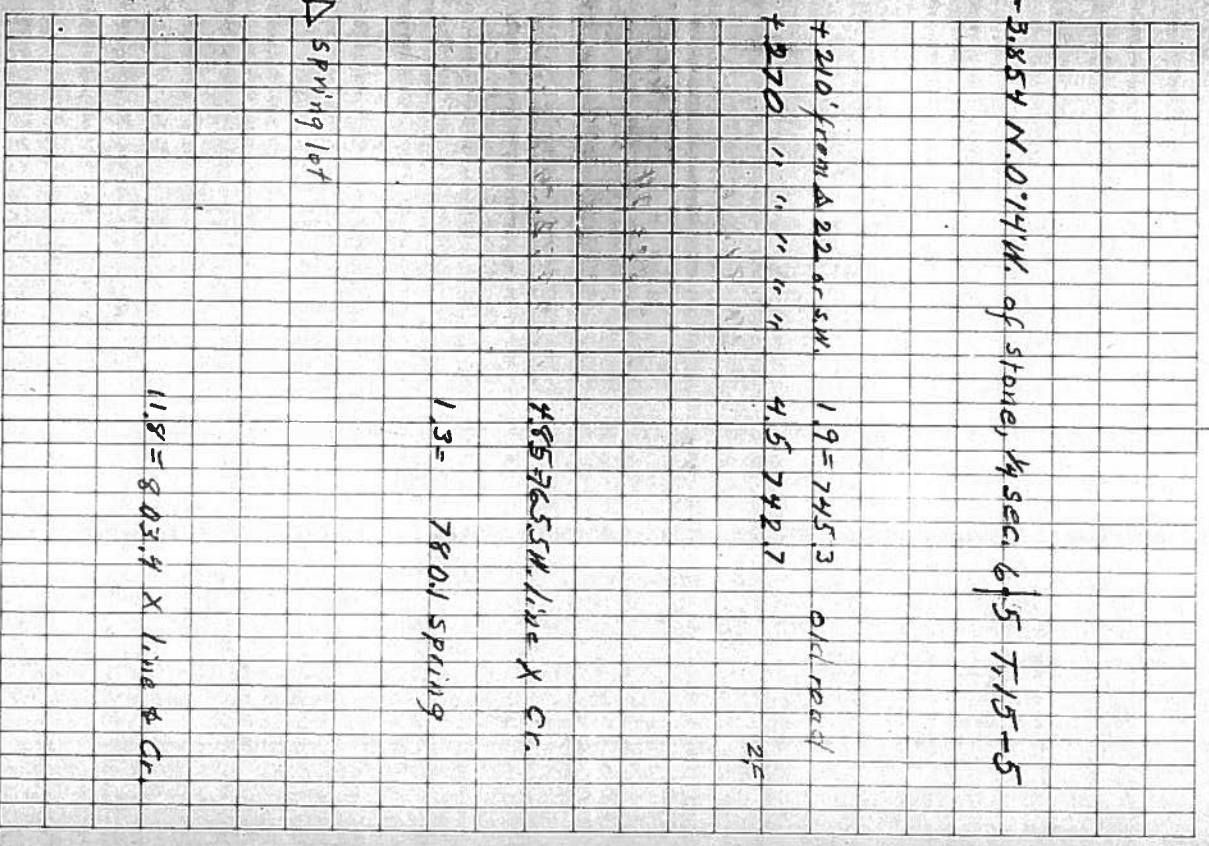 -3.85 4 N.0°14'W. of stone, 1/4 sec. 6|5 T.15-5
+ 210' from Δ 22 or SW. 1.9= 745.3 old road
+ 270 " " " " " 4.5 742.7
4.85=765.5 W. line X Cr.
1.3= 780.1 spring
Δ spring lot
11.8= 803.4 X line & Cr.